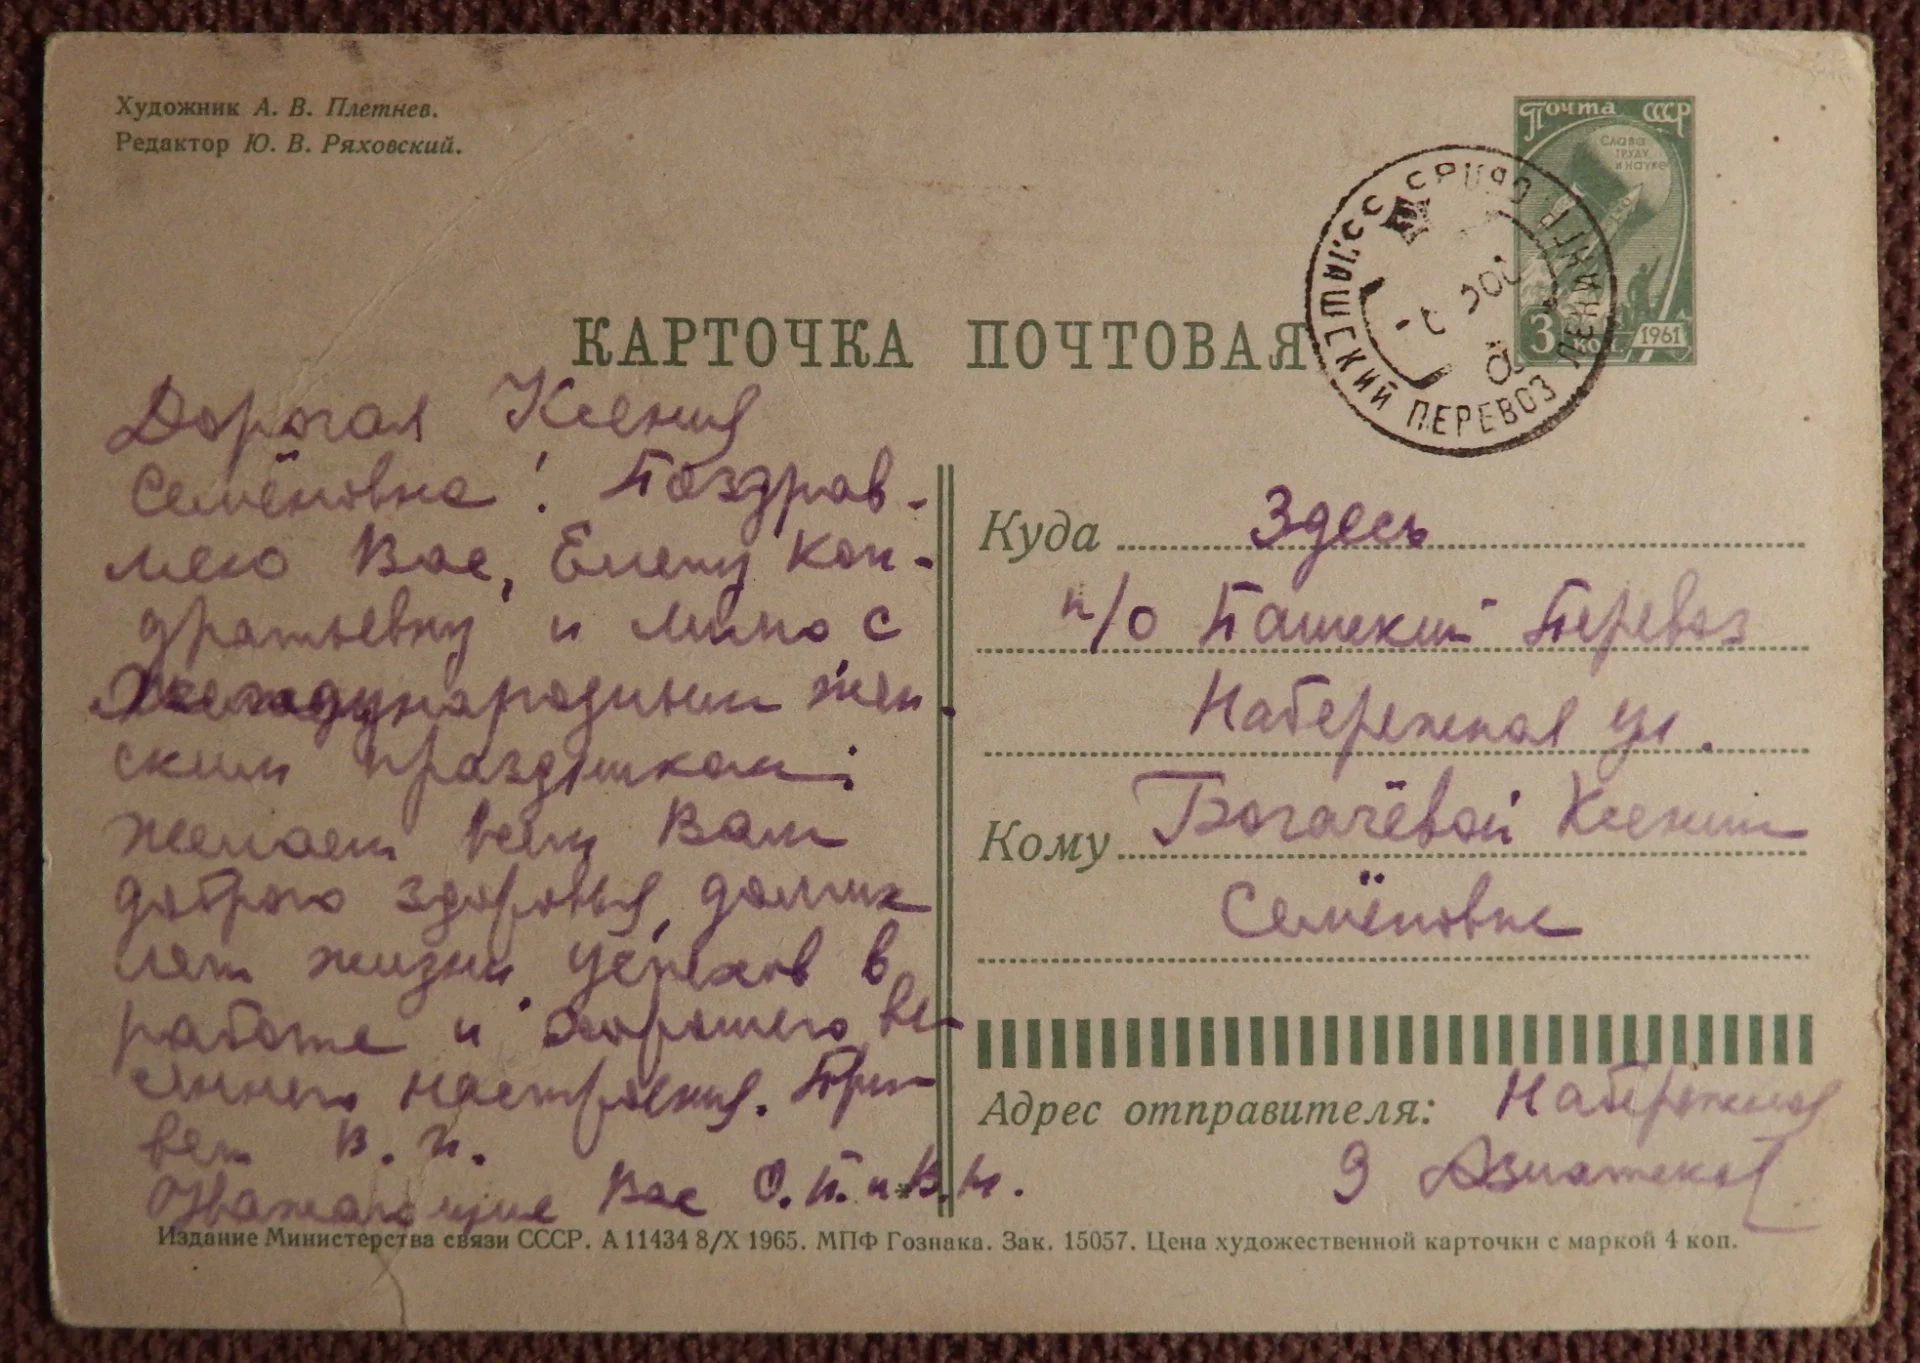 Художник А. В. Плетнев.
Редактор Ю. В. Ряховский.
Почта СССР
Слава
труду
и науке
3 коп. 1961
ПЕРЕВОЗ
КАРТОЧКА ПОЧТОВАЯ
Дорогая Ксения
Семёновна! Поздрав-
ляю Вас, Елену Кон-
дратьевну и с
Международным жен-
ским праздником.
Желаем всем Вам
доброго здоровья,
лет жизни, успехов в
работе и хорошего ве-
сеннего настроения. При-
вет В. Н.
Уважающие Вас О.П. и В.Н.
Куда Здесь
п/о Пашский Перевоз
Набережная ул.
Кому Богачёвой Ксении
Семёновне
Адрес отправителя: Набережная
9
Издание Министерства связи СССР. А 11434 8/X 1965. МПФ Гознака. Зак. 15057. Цена художественной карточки с маркой 4 коп.